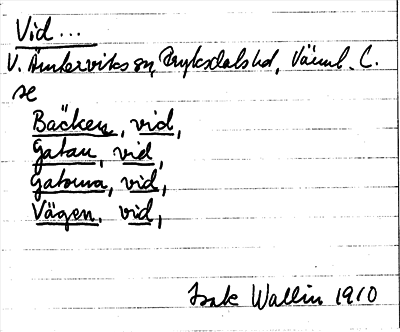 Vid ...
V. Ämterviks sn, Fryksdals hd, Värml. C.
se
Bäcken, vid,
Gatan, vid,
Gatorna, vid,
Vägen, vid,
Isak Wallin 1910